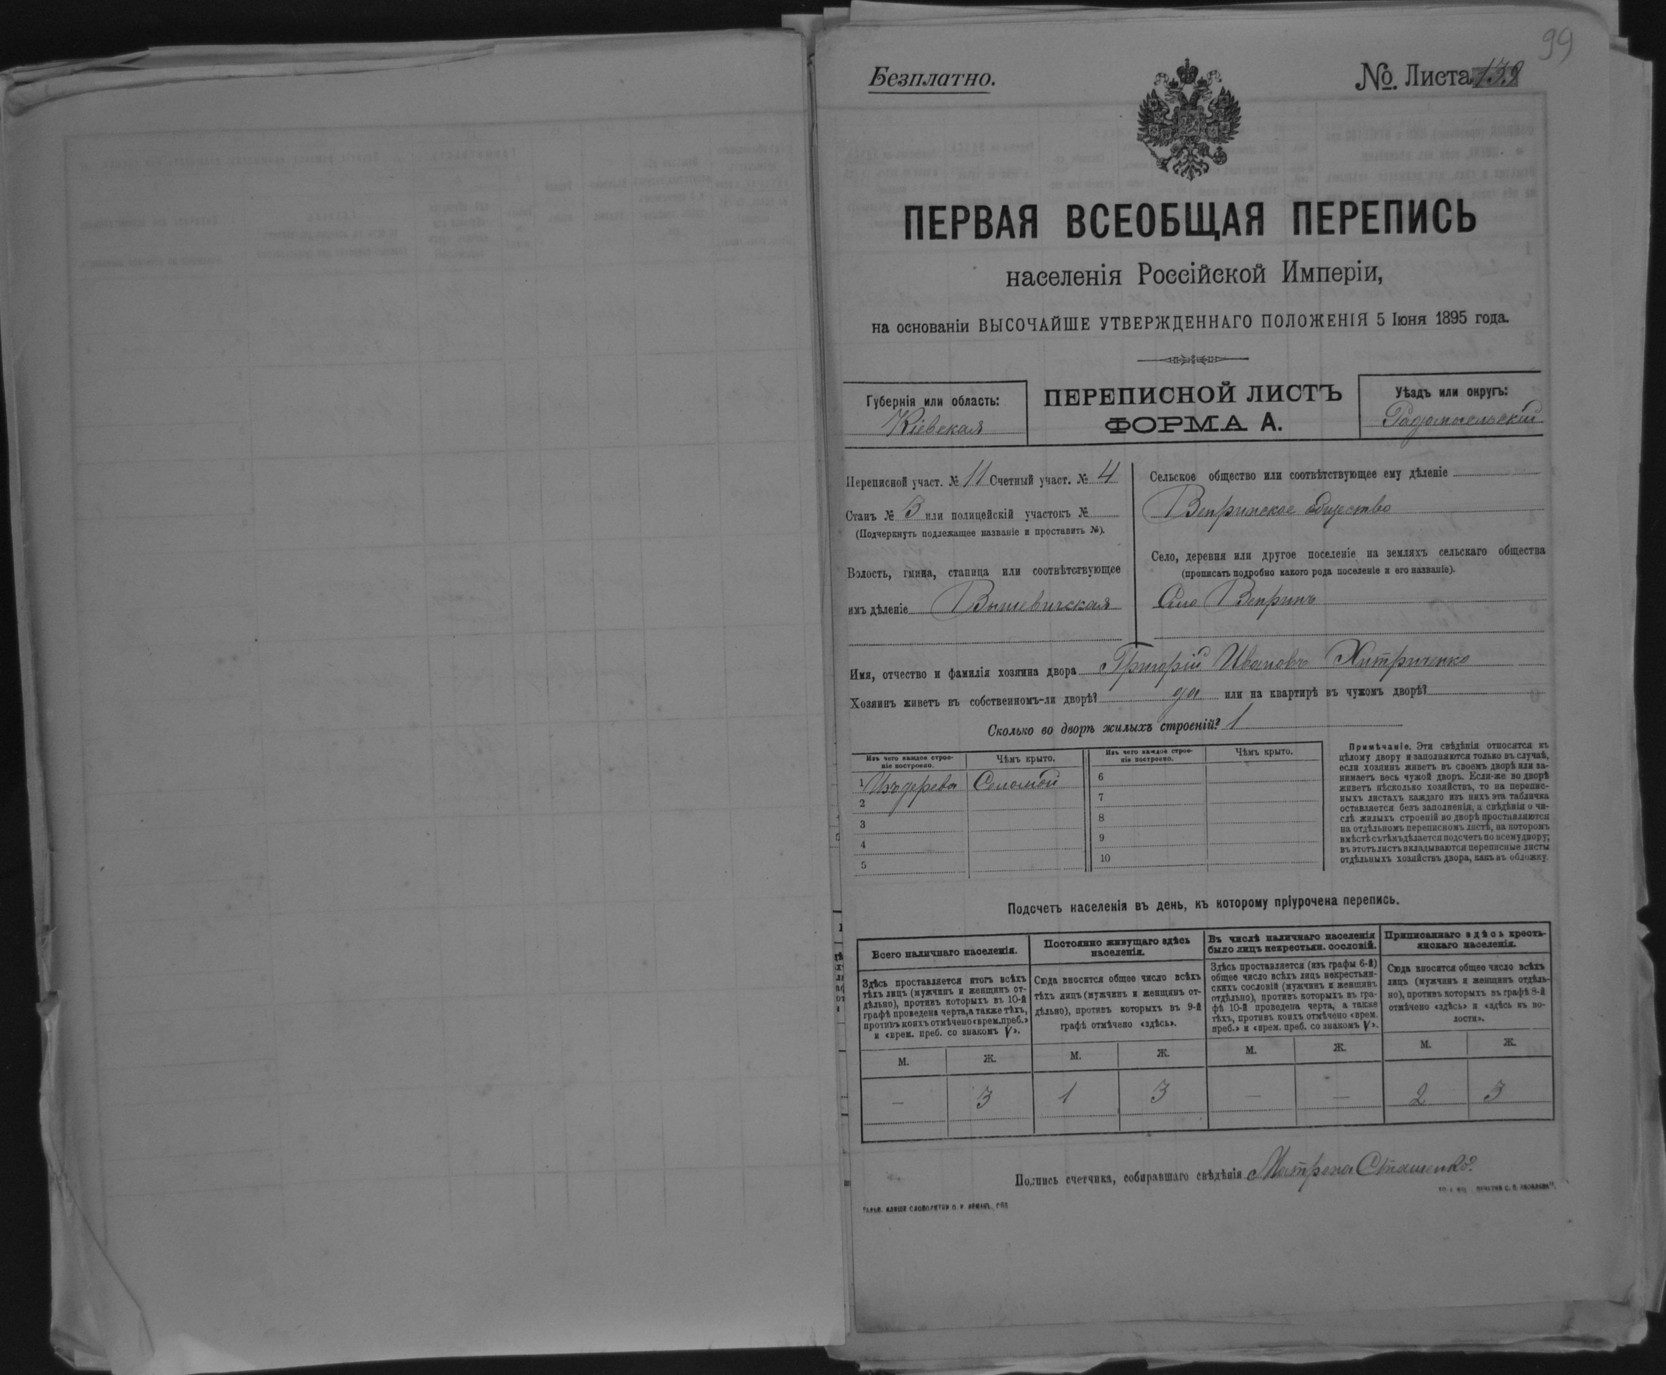 99
Безплатно.
№ Листа 139
ПЕРВАЯ ВСЕОБЩАЯ ПЕРЕПИСЬ
населенія Россійской Имперіи,
на основаніи ВЫСОЧАЙШЕ УТВЕРЖДЕННАГО ПОЛОЖЕНІЯ 5 Іюня 1895 года.
Губернія или область:
Кіевская
ПЕРЕПИСНОЙ ЛИСТЪ
ФОРМА А.
Уѣздъ или округъ:
Радомысльскій
Переписной участ. № 11 Счетный участ. № 4
Станъ № 3 или полицейскій участокъ №
(Подчеркнуть подлежащее названіе и проставить №).
Волость, гмина, станица или соотвѣтствующее
имъ дѣленіе Вышевичская
Сельское общество или соотвѣтствующее ему дѣленіе
Вепринское общество
Село, деревня или другое поселеніе на земляхъ сельскаго общества
(прописать подробно какого рода поселеніе и его названіе).
Село Вепринъ
Имя, отчество и фамилія хозяина двора Григорій Ивановъ Хитриченко
Хозяинъ живетъ въ собственномъ-ли дворѣ? да или на квартирѣ въ чужомъ дворѣ?
Сколько во дворѣ жилыхъ строеній? 1
Изъ чего каждое строе-
ніе построено.
Чѣмъ крыто.
1 Изъ дерева Соломой
2
3
4
5
Изъ чего каждое строе-
ніе построено.
Чѣмъ крыто.
6
7
8
9
10
Примѣчаніе. Эти свѣдѣнія относятся къ
цѣлому двору и заполняются только въ случаѣ,
если хозяинъ живетъ въ своемъ дворѣ или за-
нимаетъ весь чужой дворъ. Если-же во дворѣ
живетъ нѣсколько хозяйствъ, то на перепис-
ныхъ листахъ каждаго изъ нихъ эта табличка
оставляется безъ заполненія, а свѣдѣнія о чи-
слѣ жилыхъ строеній во дворѣ проставляются
на отдѣльномъ переписномъ листѣ, на которомъ
вмѣстѣ съ тѣмъ дѣлается подсчетъ по всему двору;
въ этотъ листъ вкладываются переписные листы
отдѣльныхъ хозяйствъ двора, какъ въ обложку.
Подсчетъ населенія въ день, къ которому пріурочена перепись.
Всего наличнаго населенія.
Здѣсь проставляется итогъ всѣхъ
тѣхъ лицъ (мужчинъ и женщинъ от-
дѣльно), противъ которыхъ въ 10-й
графѣ проведена черта, а также тѣхъ,
противъ коихъ отмѣчено «врем. преб.»
и «врем. преб. со знакомъ V».
М. Ж.
— 3
Постоянно живущаго здѣсь
населенія.
Сюда вносится общее число всѣхъ
тѣхъ лицъ (мужчинъ и женщинъ от-
дѣльно), противъ которыхъ въ 9-й
графѣ отмѣчено «здѣсь».
М. Ж.
1 3
Въ числѣ наличнаго населенія
было лицъ некрестьян. сословій.
Здѣсь проставляется (изъ графы 6-й)
общее число всѣхъ лицъ некрестьян-
скихъ сословій (мужчинъ и женщинъ
отдѣльно), противъ которыхъ въ гра-
фѣ 10-й проведена черта, а также
тѣхъ, противъ коихъ отмѣчено «врем.
преб.» и «врем. преб. со знакомъ V».
М. Ж.
— —
Приписаннаго здѣсь кресть-
янскаго населенія.
Сюда вносится общее число всѣхъ
лицъ (мужчинъ и женщинъ отдѣль-
но), противъ которыхъ въ графѣ 8-й
отмѣчено «здѣсь» и «здѣсь въ во-
лости».
М. Ж.
2 3
Подпись счетчика, собиравшаго свѣдѣнія Матрена